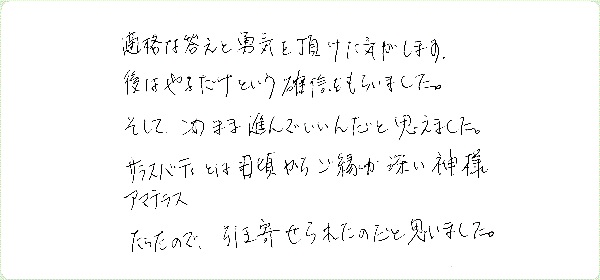 適格な答えと勇気を頂けた気がします。
後はやるだけという確信をもらいました。
そして、このまま進んでいいんだと思えました。
サラスバティとは日頃からご縁が深い神様
アマテラス
だったので、引き寄せられたのだと思いました。